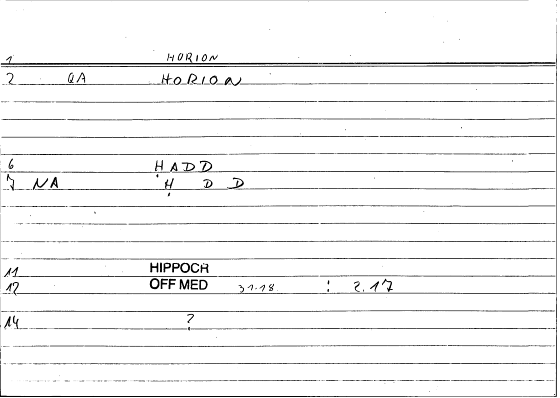 1 HORION
2 QA HORION
6 HADD
7 NA H D D
11 HIPPOCR
12 OFF MED 31-18 : 2.17
14 ?